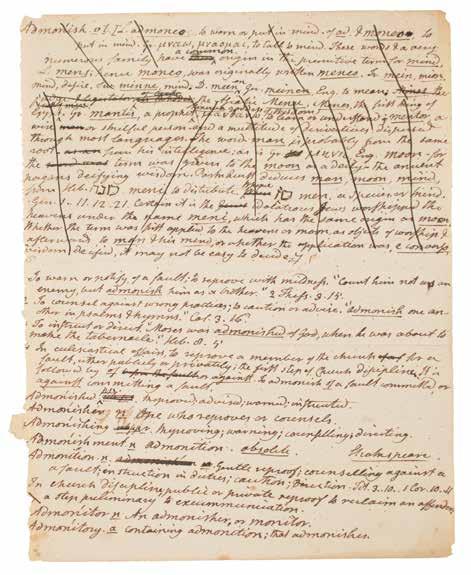 Admonish vt [L. admoneo. to warn or put in mind. of ad & moneo to
put in mind. Gr. μναω, μναομαι, to call to mind. These words & a very
a common
numerous family have origin in the primitive term for mind
L. mens; and moneo, was originally written meneo. Ir. mein, mian,
mind, desire,
the first king of
Egypt. Gr. mantis, a prophet; to learn or understand; mentor, a
wise or skilful person and a multitude of derivatives, dispersed
through most languages. The word man is probably from the same
root from his intelligence; as is Eng. moon for
the term was given to the moon as a deity, the ancient
pagans deifying wisdom. Parkhurst deduces man, moon, mind
from Heb. meni to distribute a species, or kind.
Gen. 1. 11. 12. 21. Certain it is the idolatrous Jews worshipped the
heavens under the name meni, which has the same origin as moon.
Whether the term was first applied to the heavens or moon, as objects of worship &
afterward to man & his mind, or whether the application was, e converso
wisdom deified, it may not be easy to decide.]
To warn or notify of a fault; to reprove with mildness. "Count him not as an
enemy, but admonish him as a brother." 2 Thess. 3. 15.
2 To counsel against wrong practices; to caution or advise. "admonish one an-
other in psalms & hymns." Col. 3. 16.
To instruct or direct. "Moses was admonished of God, when he was about to
make the tabernacle." Heb. 8. 5
In ecclesiastical affairs, to reprove a member of the church for a
fault, either publicly or privately; the first step of Church discipline. It is
followed by of or against. To admonish of a fault committed, or
against committing a fault.
Admonished Reproved; advised; warned; instructed.
Admonisher n One who reproves or counsels.
Admonishing Reproving; warning; counselling; directing.
Admonishment n admonition. obsolete. Shakspeare
Admonition n. Gentle reproof; counselling against a
fault; instruction in duties; caution; direction. Tit. 3. 10. 1 Cor. 10. 11
In church discipline, public or private reproof to reclaim an offender,
a step preliminary to excommunication.
Admonitor n An admonisher, or monitor.
Admonitory. a Containing admonition; that admonishes.